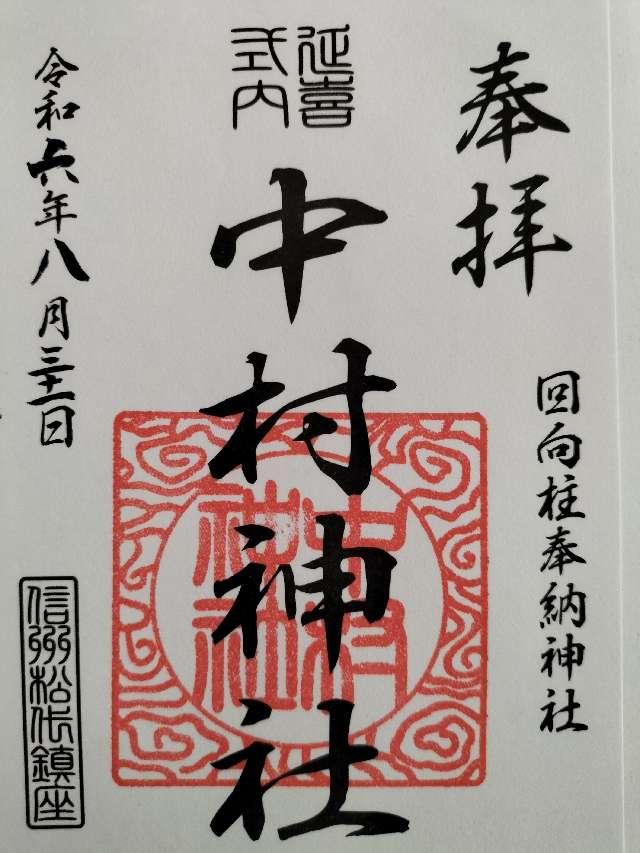 奉拝
回向柱奉納神社
延喜
式内
中村神社
中村
神社
令和六年八月三十一日
信州松代鎮座